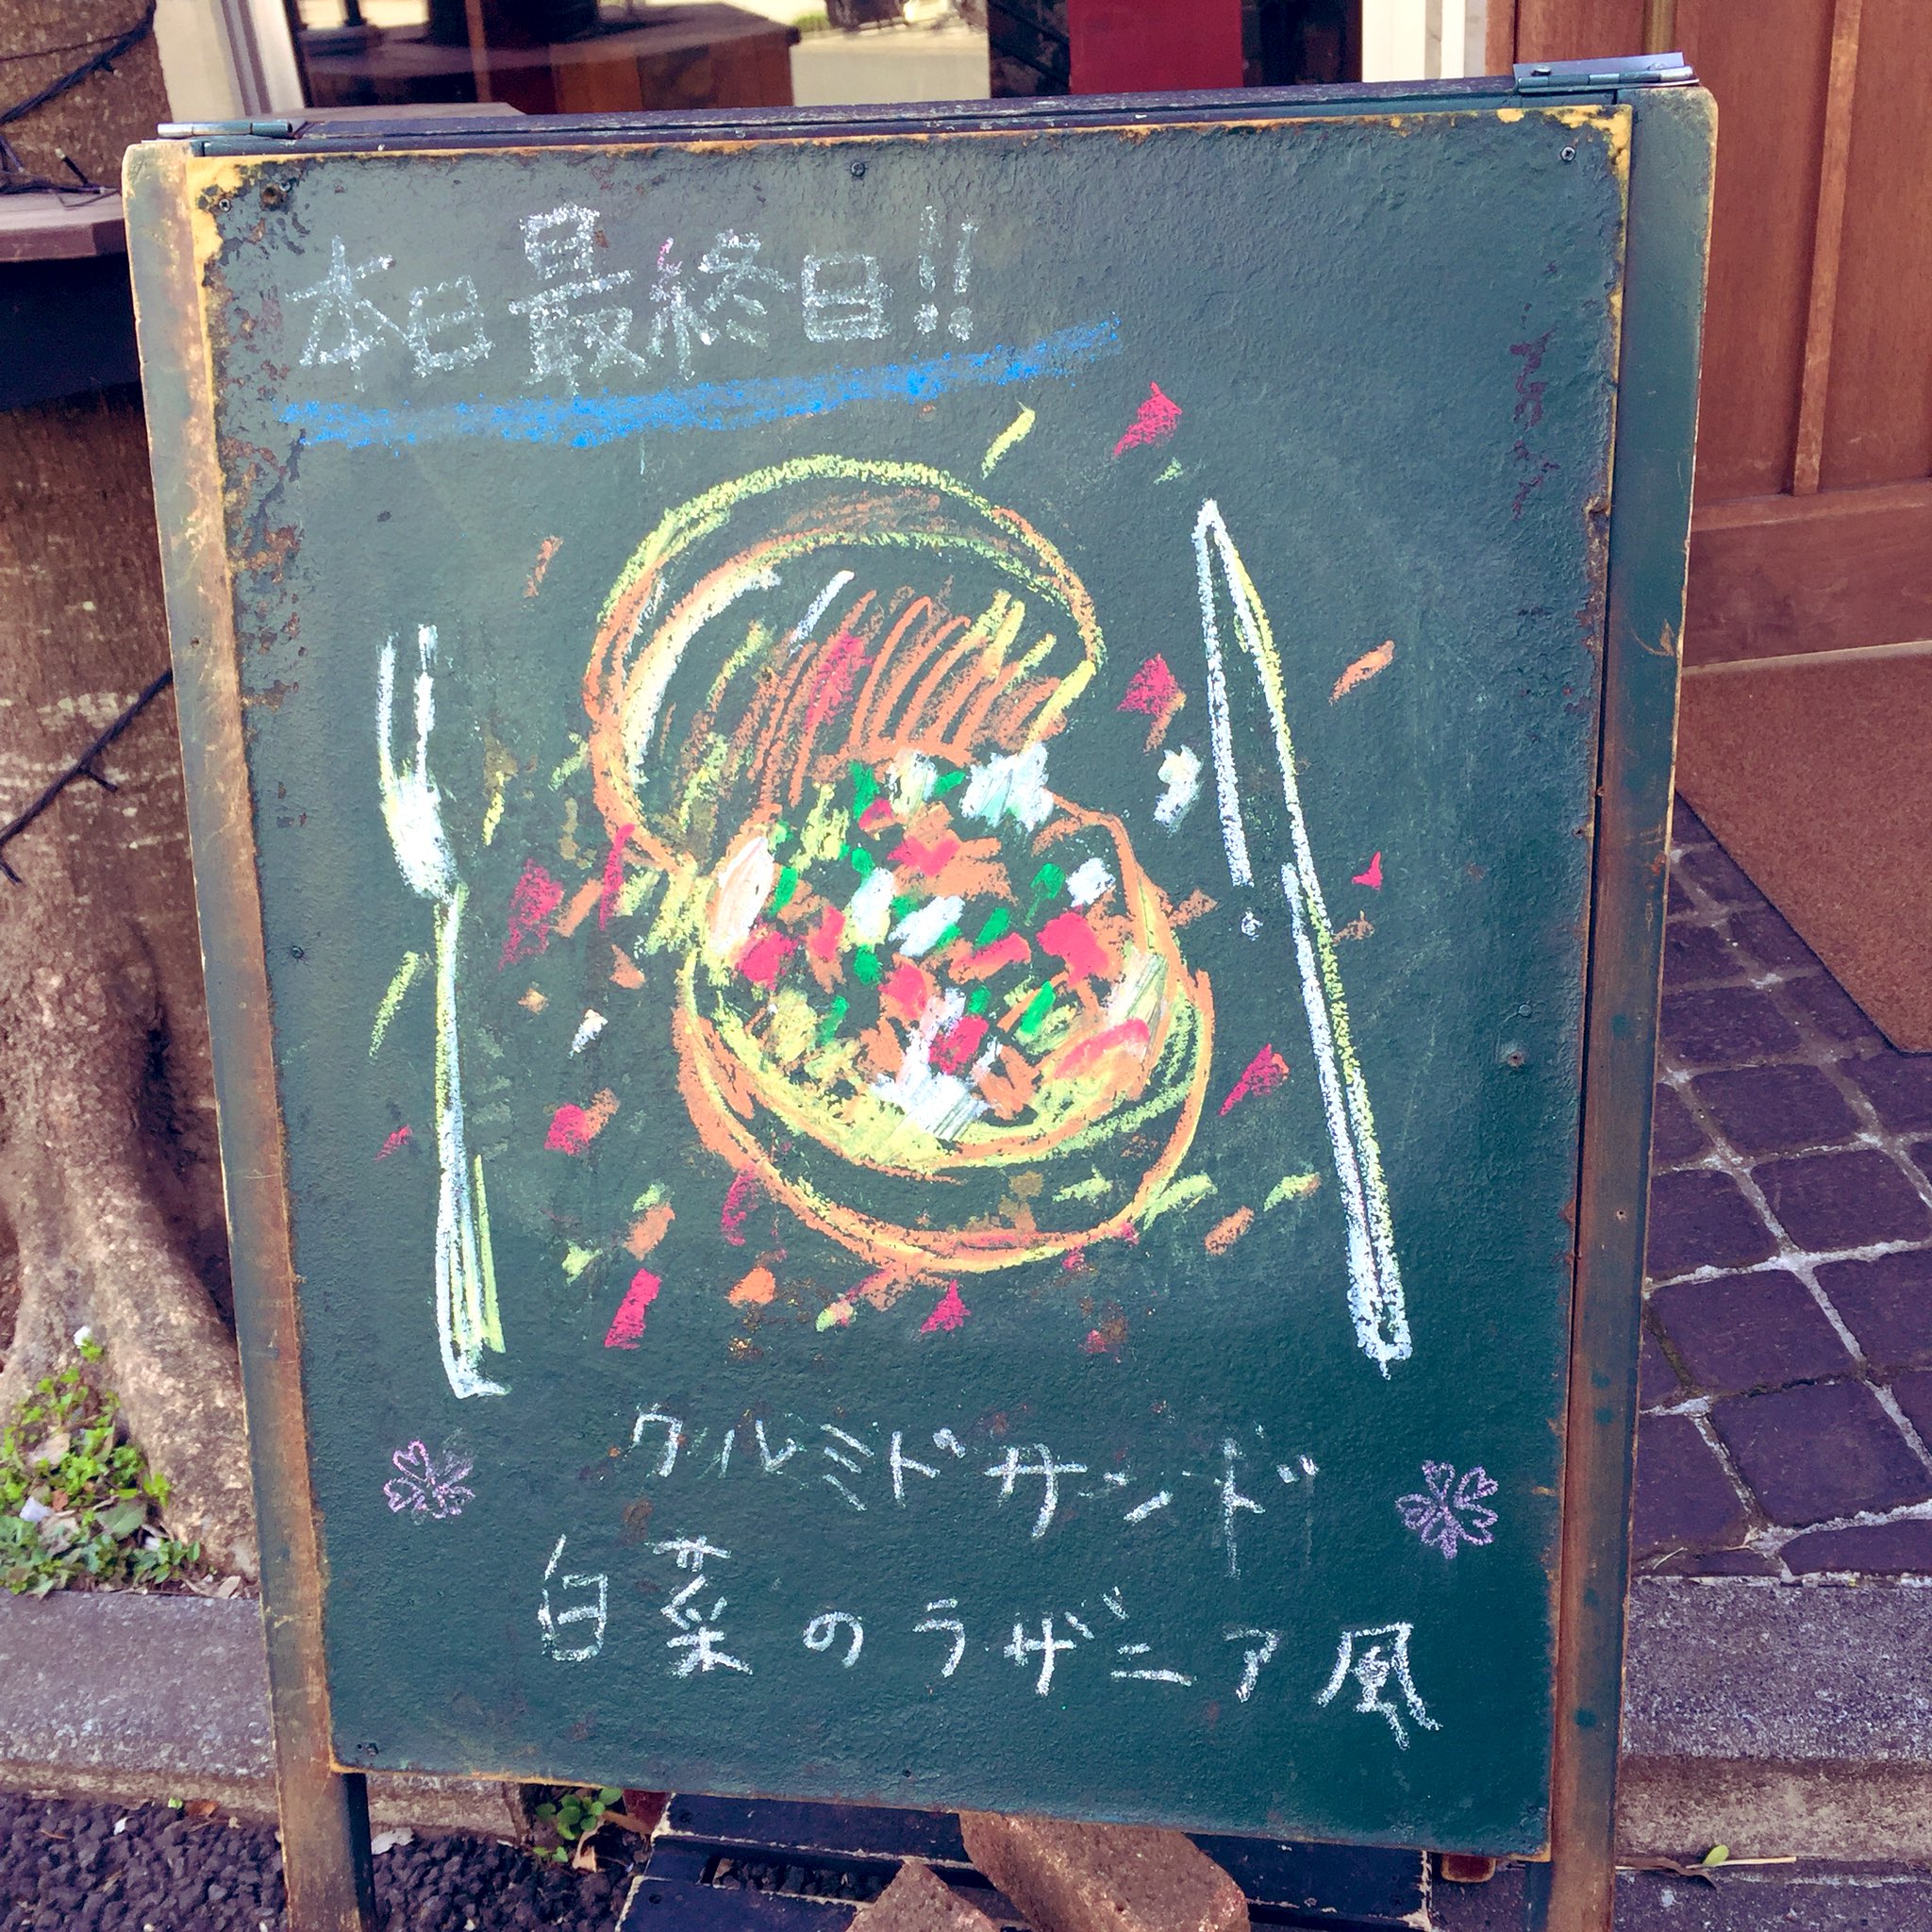 本日最終日!!
クルミドサンド
白菜のラザニア風